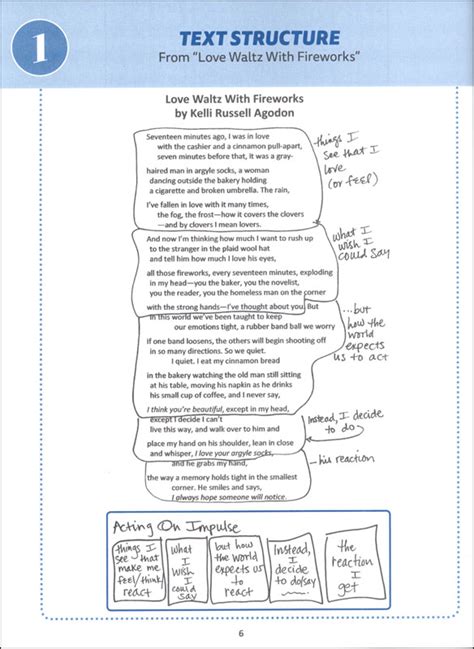 1
TEXT STRUCTURE
From "Love Waltz With Fireworks"
Love Waltz With Fireworks
by Kelli Russell Agodon
Seventeen minutes ago, I was in love
with the cashier and a cinnamon pull-apart,
seven minutes before that, it was a gray-
haired man in argyle socks, a woman
dancing outside the bakery holding
a cigarette and broken umbrella. The rain,
I've fallen in love with it many times,
the fog, the frost—how it covers the clovers
—and by clovers I mean lovers.
things I
see that I
love
(or feel)
And now I'm thinking how much I want to rush up
to the stranger in the plaid wool hat
and tell him how much I love his eyes,
all those fireworks, every seventeen minutes, exploding
in my head—you the baker, you the novelist,
you the reader, you the homeless man on the corner
with the strong hands—I've thought about you. But
what I
wish I
could say
in this world we've been taught to keep
our emotions tight, a rubber band ball we worry
if one band loosens, the others will begin shooting off
in so many directions. So we quiet.
I quiet. I eat my cinnamon bread
in the bakery watching the old man still sitting
at his table, moving his napkin as he drinks
his small cup of coffee, and I never say,
I think you're beautiful, except in my head,
...but
how the
world
expects
us to act
except I decide I can't
live this way, and walk over to him and
place my hand on his shoulder, lean in close
and whisper, I love your argyle socks,
Instead, I decide
to do
and he grabs my hand,
the way a memory holds tight in the smallest
corner. He smiles and says,
I always hope someone will notice.
- his reaction
Acting On Impulse
things I
see that
make me
feel/think/
react
what
I
wish
I
could
say
but how
the world
expects us
to
react
Instead,
I
decide
to do/say
the
reaction
I
get
6